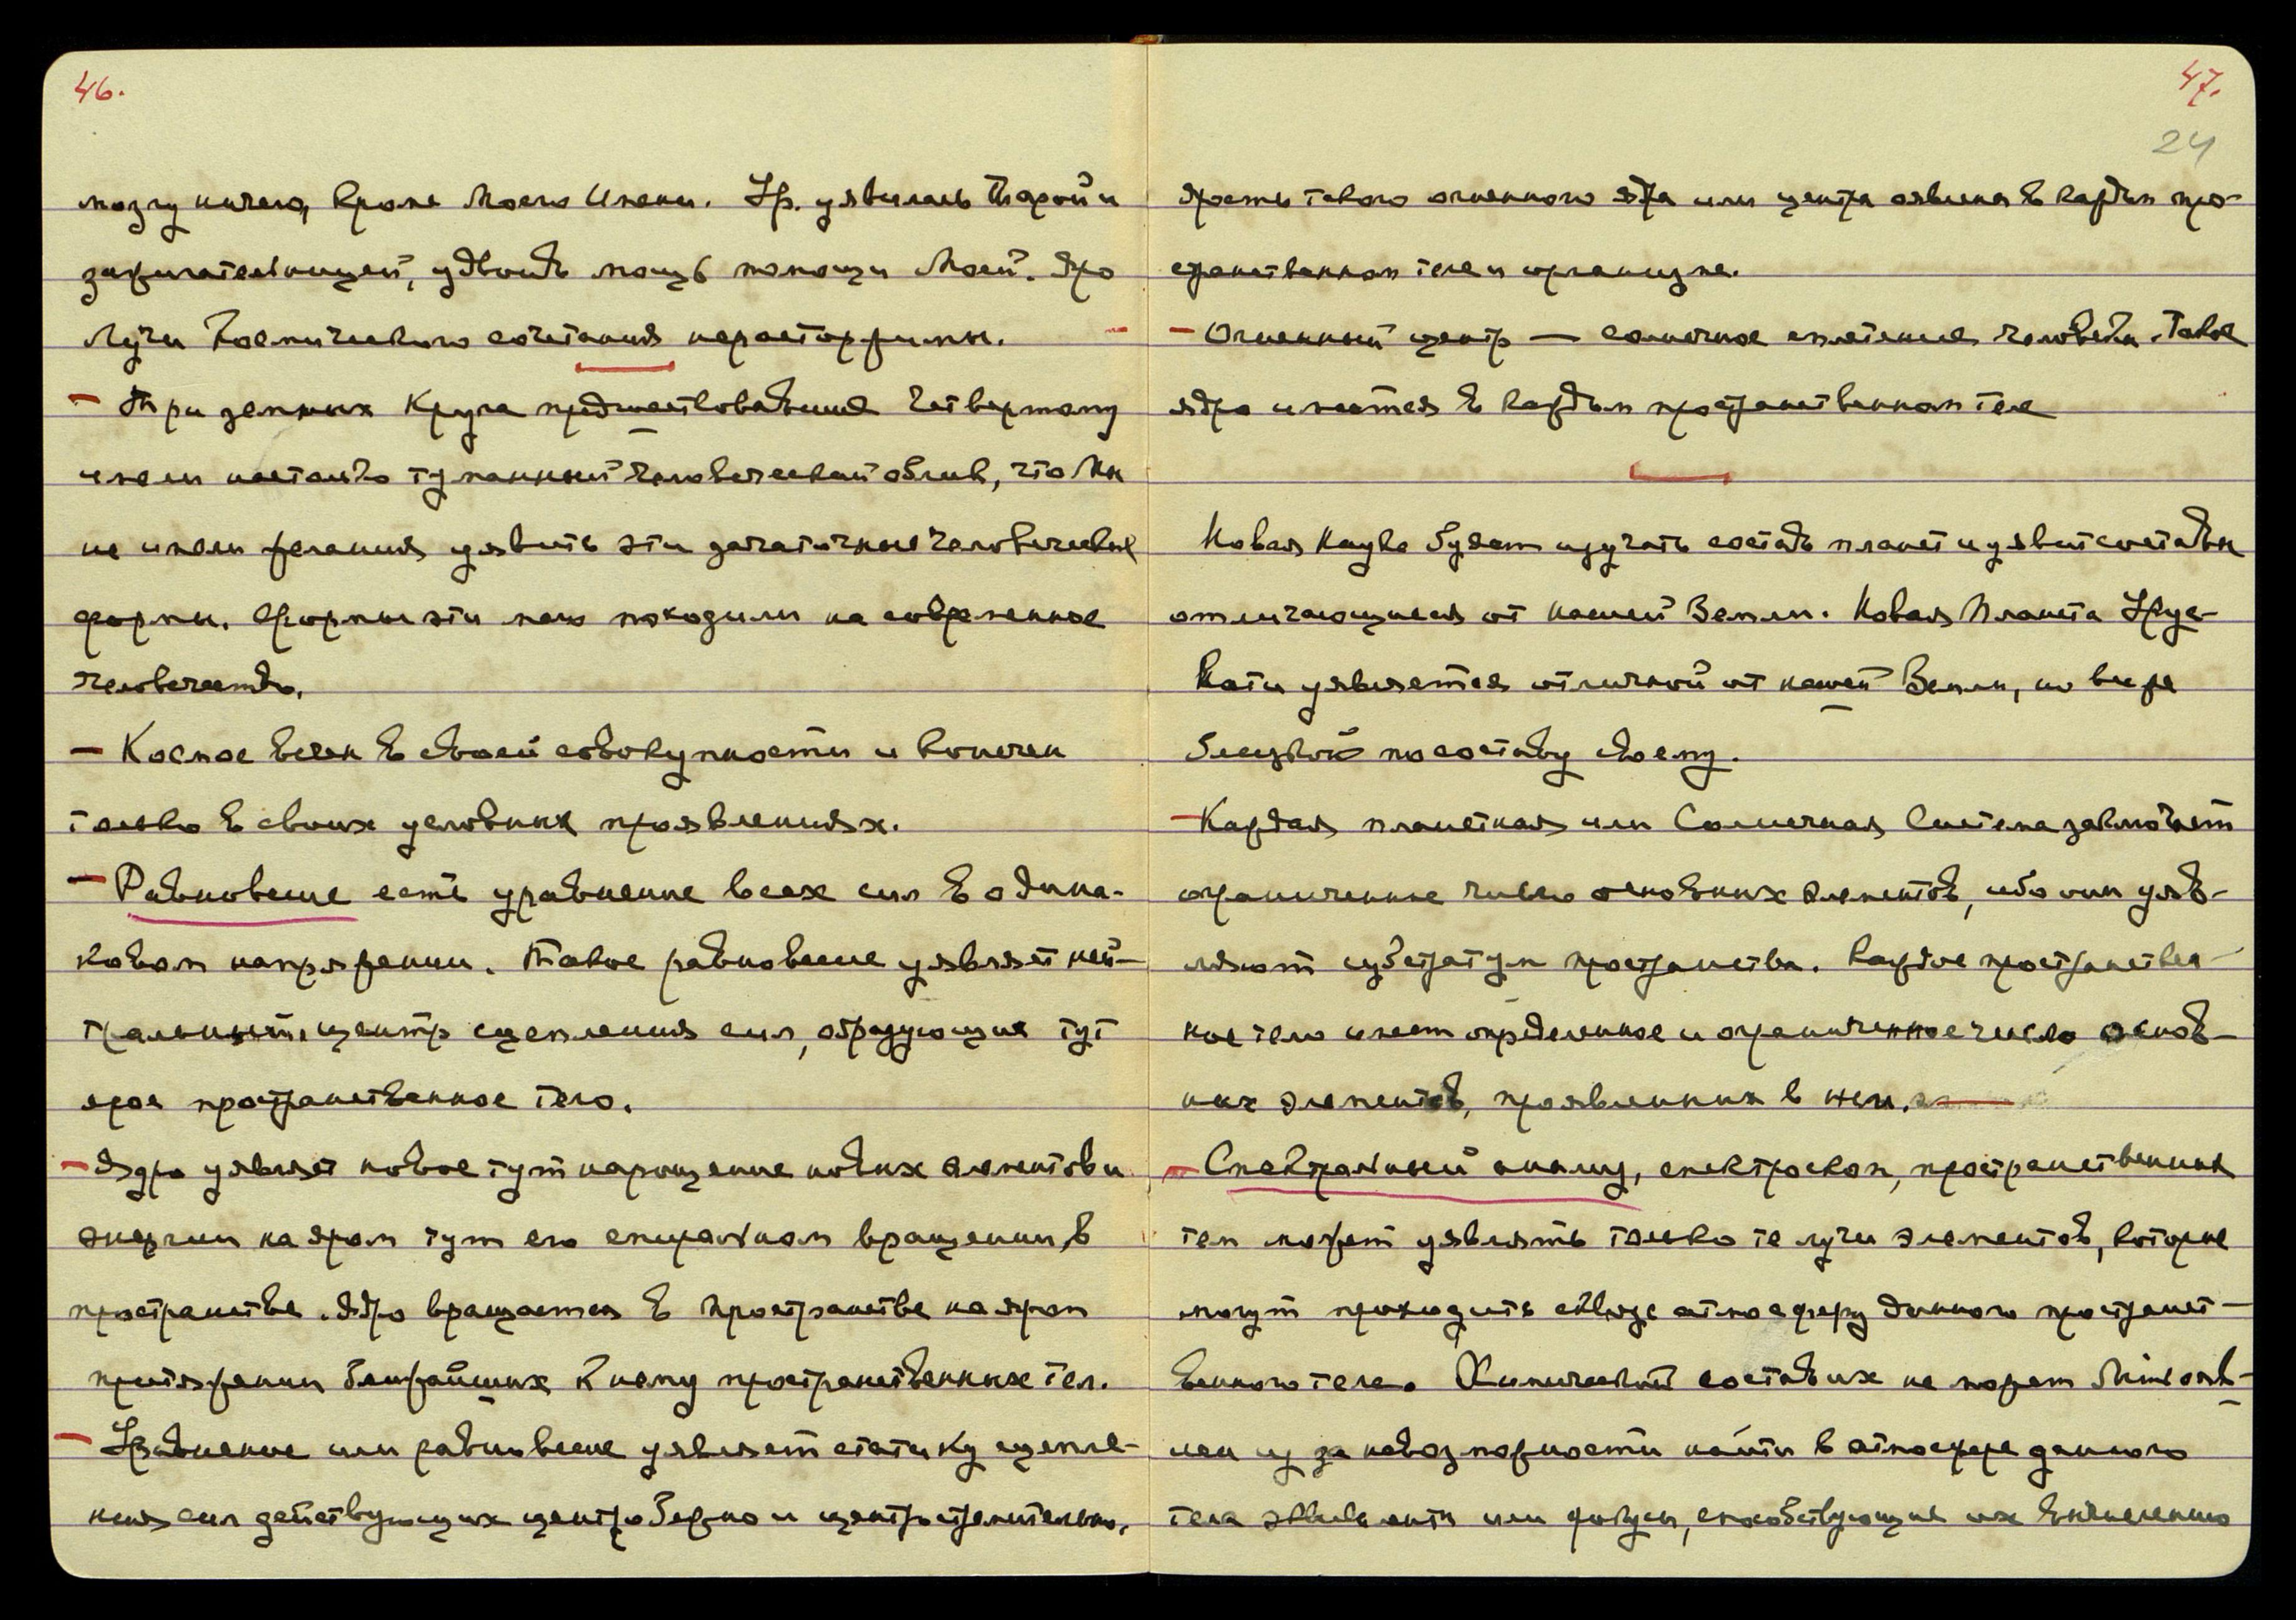 46.
мозгу ничего, кроме Моего Имени. Ур. явилась Тарой и
зажигательницей, удвоить мощь помощи Моей. Яро
Лучи Космического сочетания нерасторжимы.
— Три земных Круга предшествовавшие Четвертому
имели настолько туманный человеческий облик, что Мы
не имели желания уявить эти зачаточные человеческие
формы. Формы эти мало походили на современное
человечество.
— Космос вечен в своей совокупности и конечен
только в своих условных проявлениях.
— Равновесие есть уравнение всех сил в одина-
ковом напряжении. Такое равновесие уявляет ней-
тральный центр сцепления сил, образующие тут
ярое пространственное тело.
— Ядро уявляет новое тут наращение новых элементов и
энергии на яром тут его спиральном вращении, в
пространстве. Ядро вращается в пространстве на яром
притяжении ближайших к нему пространственных тел.
— Уравнение или равновесие уявляет статику сцепле-
ния сил действующих центробежно и центростремительно.
47.
24
Ярость такого огненного ядра или центра оявлена в каждом про-
странственном теле и организме.
— Огненный центр — солнечное сплетение человека. Такое
ядро имеется в каждом пространственном теле
Новая Наука будет изучать состав планет и уявит составы
отличающиеся от нашей Земли. Новая Планета Уру-
кати уявляется отличной от нашей Земли, но все же
близкой по составу своему.
— Каждая планетная или Солнечная Система заключает
ограниченное число основных элементов, ибо они уяв-
ляют субстрату пространства. Каждое пространствен-
ное тело имеет определенное и ограниченное число основ-
ных элементов, проявленных в нем.
— Спектральный анализ, спектроскоп, пространственных
тел может уявлять только те лучи элементов, которые
могут проходить сквозь атмосферу данного пространст-
венного тела. Химический состав их не может быть явл-
ен из за невозможности найти в атмосфере данного
тела эквиваленты или фокусы, способствующие их выявлению